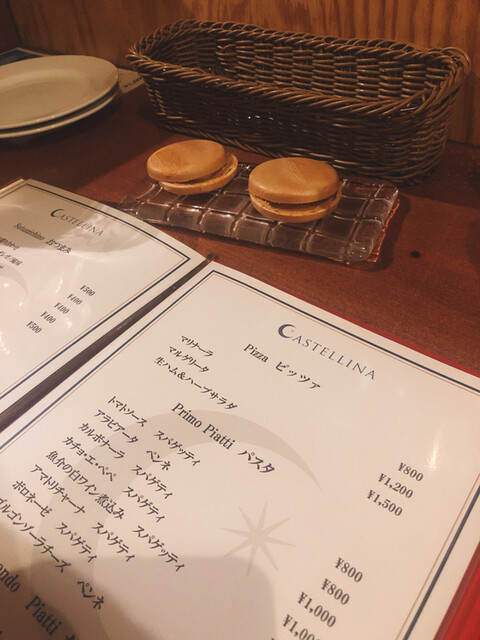 CASTELLINA
Stuzzichino おつまみ
¥500
¥400
¥400
¥500
CASTELLINA
Pizza ピッツァ
マリナーラ ¥800
マルゲリータ ¥1,200
生ハム&ハーブサラダ ¥1,500
Primo Piatti パスタ
トマトソース スパゲッティ ¥800
アラビアータ ペンネ ¥800
カルボナーラ スパゲティ ¥1,000
カチョ・エ・ペペ スパゲティ
魚介の白ワイン煮込み スパゲッティ
アマトリチャーナ スパゲティ
ボロネーゼ スパゲティ
ゴルゴンゾーラチーズ ペンネ
Piatti